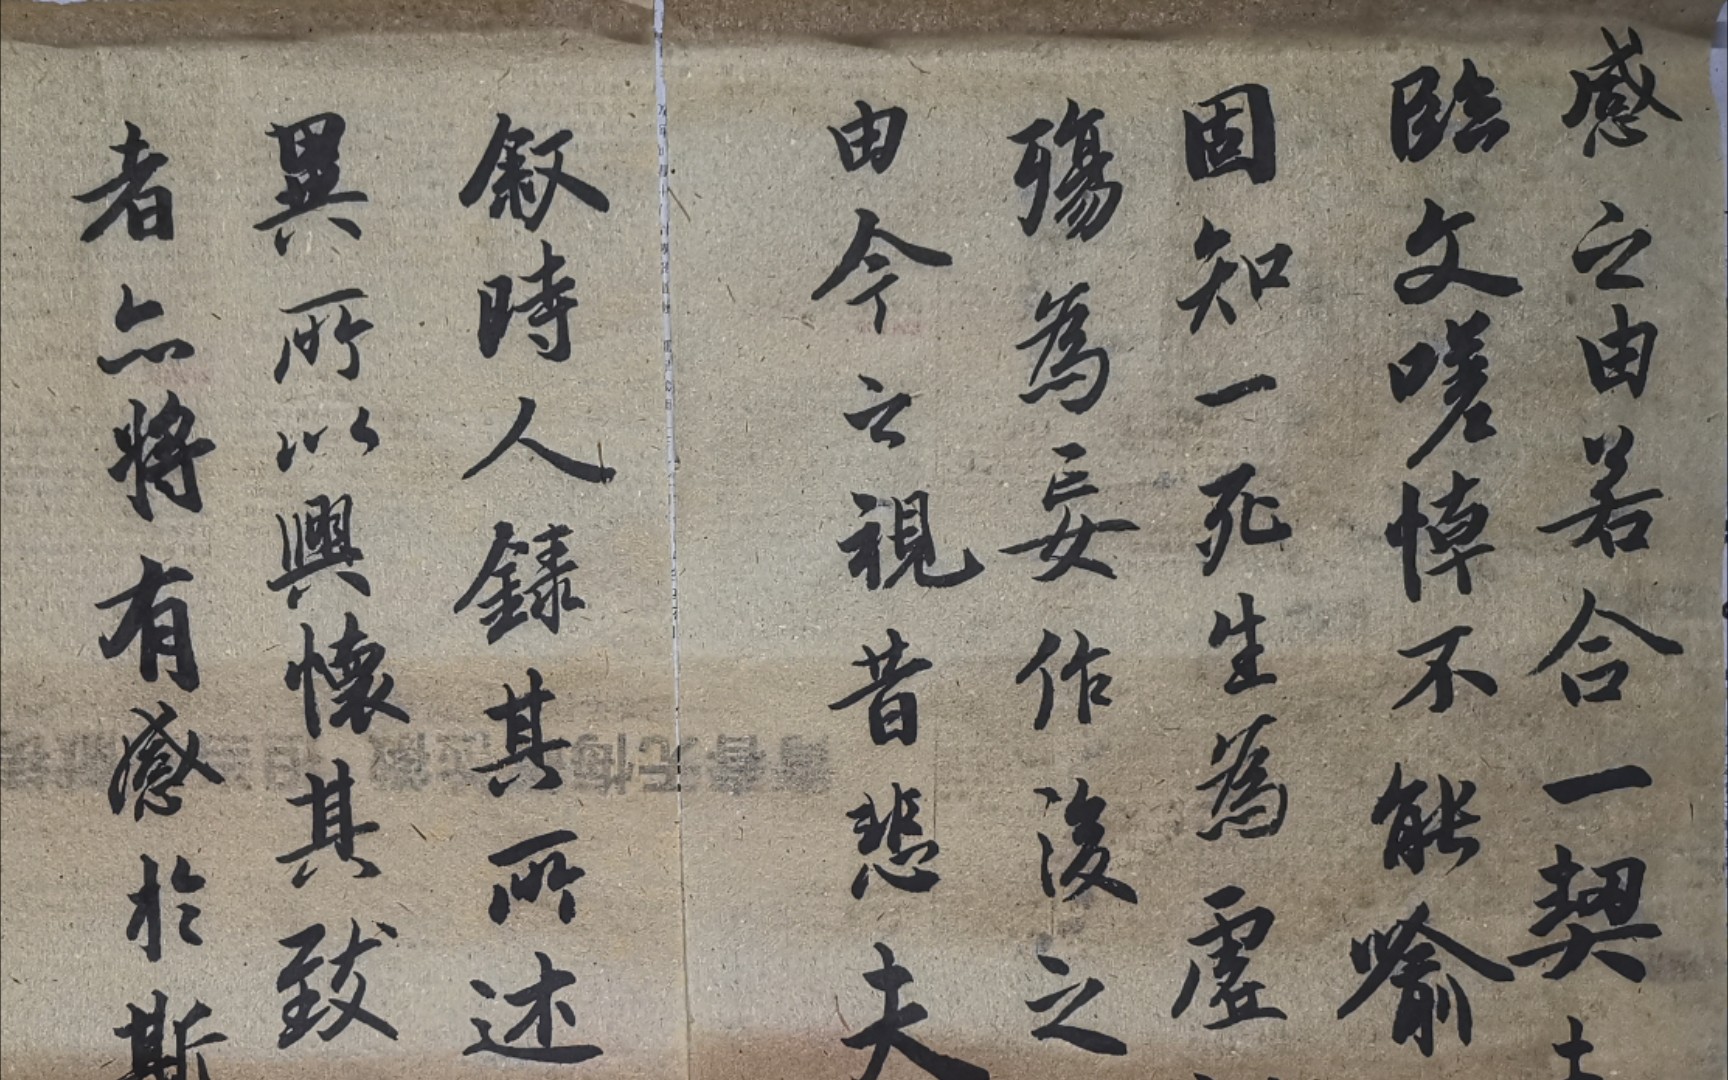 感之由若合一契
臨文嗟悼不能喻
固知一死生為虛
殤為妄作後之
由今之視昔悲夫
敘時人錄其所述
異所以興懷其致
者亦將有感於斯